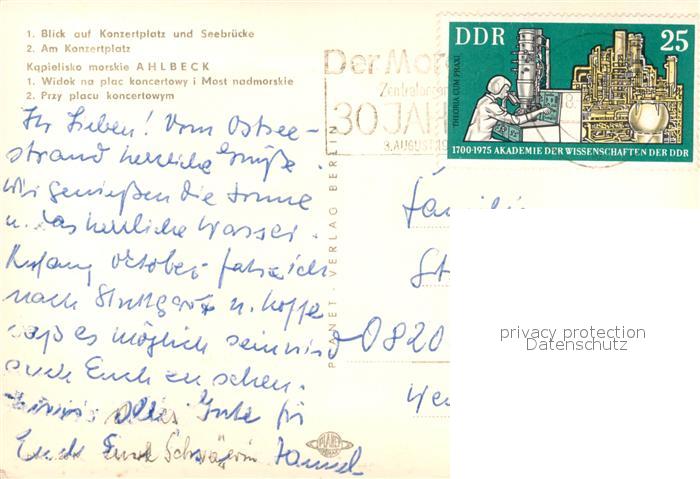 1. Blick auf Konzertplatz und Seebrücke
2. Am Konzertplatz
Kąpielisko morskie AHLBECK
1. Widok na plac koncertowy i Most nadmorskie
2. Przy placu koncertowym
Ihr Lieben! Vom Ostsee-
strand herrliche Grüße.
Wir genießen die Sonne
u. das herrliche Wasser.
Anfang October fahre ich
nach Stuttgart u. hoffe
daß es möglich sein wird
auch Euch zu sehen.
alles Gute für
Euch Eure Schwägerin
PLANET-VERLAG BERLIN
PLANET
Der Mor
Zentralorgan
30 JAH
3. AUGUST 19
DDR 25
THEORIA CUM PRAXI
1700-1975 AKADEMIE DER WISSENSCHAFTEN DER DDR
Familie
St
0820
privacy protection
Datenschutz